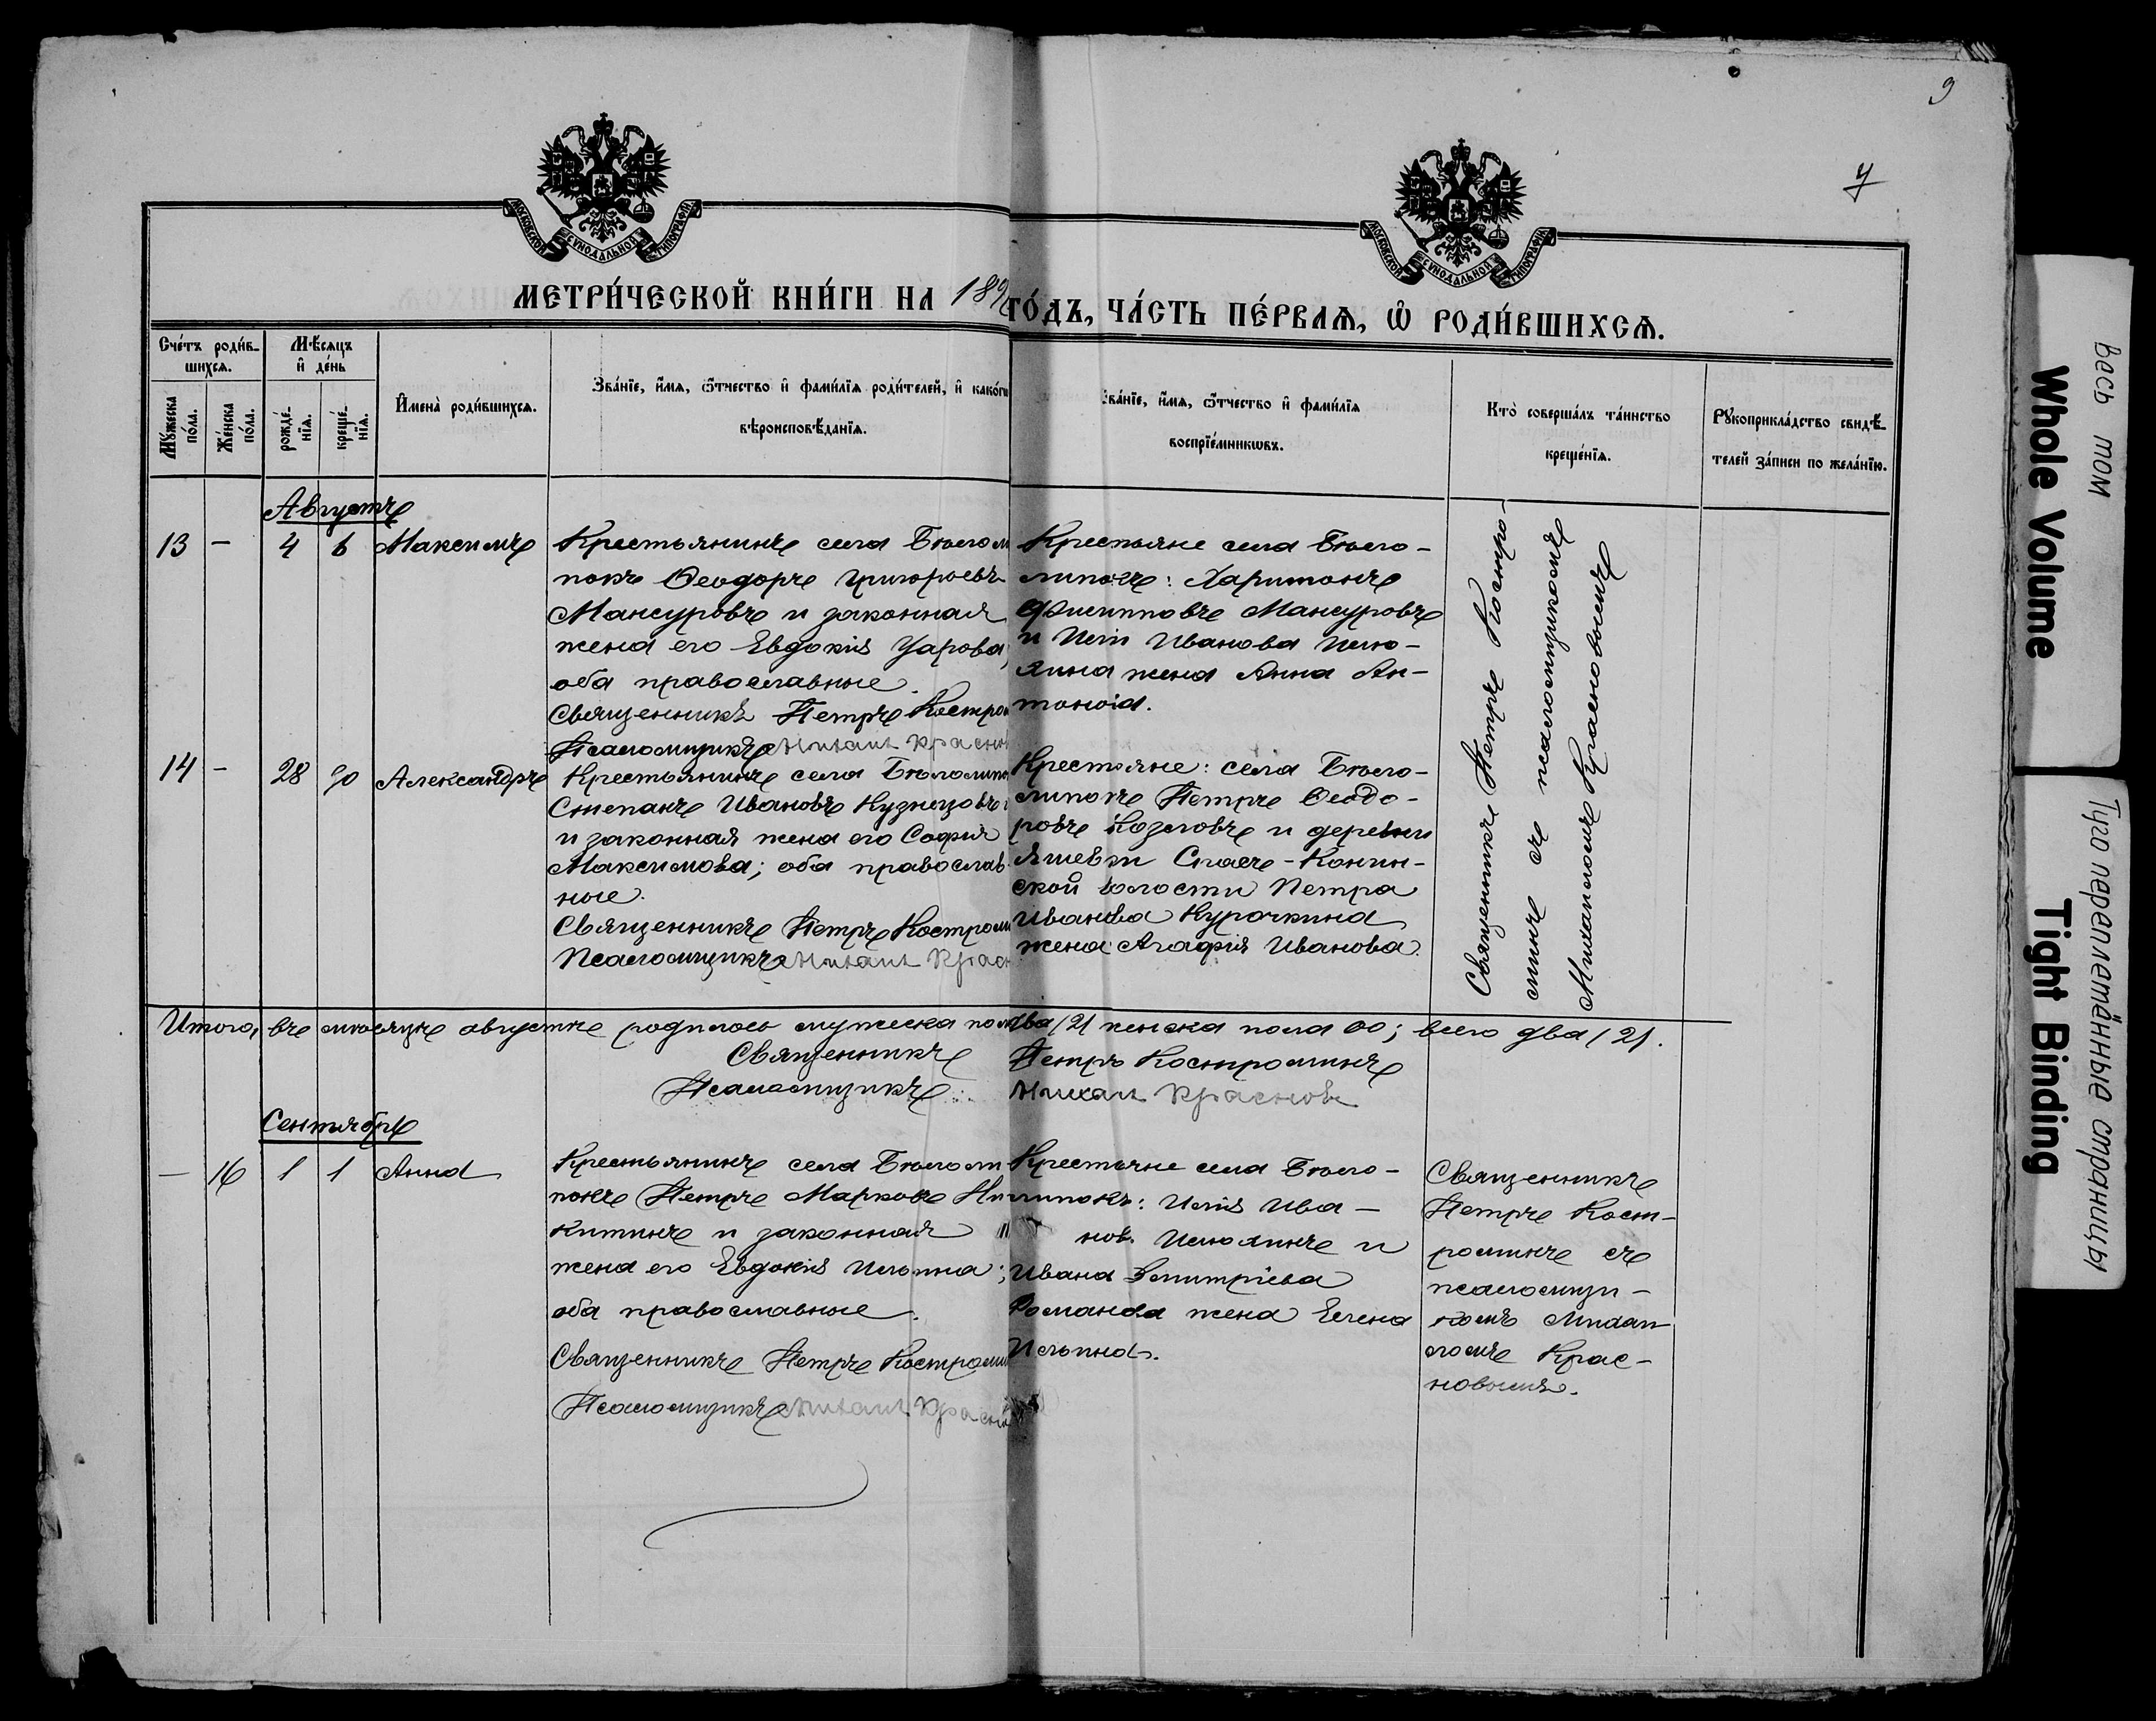 9
7
МОСКОВСКОЙ СѴНОДАЛЬНОЙ ТИПОГРАФІИ
МОСКОВСКОЙ СѴНОДАЛЬНОЙ ТИПОГРАФІИ
МЕТРИ́ЧЕСКОЙ КНИ́ГИ НА 189
ГО́ДЪ, ЧА́СТЬ ПЕ́РВАѦ, Ѽ РОДИ́ВШИХСѦ.
Сче́тъ роди́в-
шихсѧ.
Мѣ́сѧцъ
и҆ де́нь
Мꙋ́жеска по́ла.
Же́нска по́ла.
рожде́-
нїѧ.
креще́-
нїѧ.
И҆мена̀ роди́вшихсѧ.
Зва́нїе, и҆́мѧ, ѻ҆́тчество и҆ фами́лїѧ роди́телей, и҆ како́гѡ
вѣроисповѣ́данїѧ.
Зва́нїе, и҆́мѧ, ѻ҆́тчество и҆ фами́лїѧ
воспрїе́мникѡвъ.
Кто̀ соверша́лъ та́инство
креще́нїѧ.
Рꙋкоприкла́дство свидѣ́-
телей за́писи по жела́нїю.
Августъ
13 - 4 6 Максимъ
Крестьянинъ села Бѣлом
покъ Ѳеодоръ Григорьевъ
Мансуровъ и законная
жена его Евдокія Уарова,
оба православные.
Священникъ Петръ Костром
Псаломщикъ Михаилъ Краснов
Крестьяне села Бѣло-
липокъ: Харитонъ
Филипповъ Мансуровъ
и Иліи Иванова Исю-
лина жена Анна Ан-
тонова.
Священникъ Петръ Костро-
минъ съ псаломщикомъ
Михаиломъ Красновымъ
14 - 28 30 Александръ
Крестьянинъ села Бѣлолипо
Степанъ Ивановъ Кузнецовъ
и законная жена его Софія
Максимова; оба православ
ные.
Священникъ Петръ Костроми
Псаломщикъ Михаилъ Красн
Крестьяне: села Бѣло-
липокъ Петръ Ѳеодо-
ровъ Козловъ и деревни
Яшевки Спасъ-Конин-
ской волости Петра
Иванова Курочкина
жена Агафія Иванова.
Итого, въ мѣсяцѣ августѣ родилось мужеска пола два /2/ женска пола 00; всего два /2/.
Священникъ Петръ Костроминъ
Псаломщикъ Михаилъ Красновъ
Сентябрь
- 16 1 1 Анна
Крестьянинъ села Бѣлоли
покъ Петръ Марковъ Ни
китинъ и законная
жена его Евдокія Ильина;
оба православные.
Священникъ Петръ Костроми
Псаломщикъ Михаилъ Краснов
Крестьяне села Бѣло-
липокъ: Илія Ива-
новъ Исюлинъ и
Ивана Димитріева
Романова жена Елена
Ильина.
Священникъ
Петръ Кост-
роминъ съ
псаломщи-
комъ Михаи-
ломъ Крас-
новымъ.
весь том
Whole Volume
Туго переплетённые страницы
Tight Binding